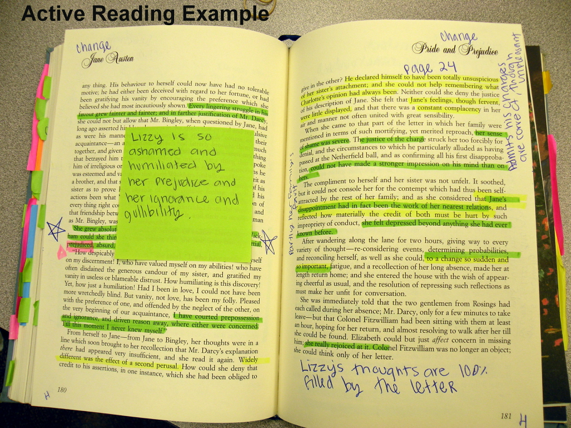 Active Reading Example
change
Jane Austen
any thing. His behaviour to herself could now have had no tolerable
motive; he had either been deceived with regard to her fortune, or had
been gratifying his vanity by encouraging the preference which she
believed she had most incautiously shown. Every lingering struggle in his
favour grew fainter and fainter; and in farther justification of Mr. Darcy,
she could not but allow that Mr. Bingley, when questioned by Jane, had
long ago asserted his
Lizzy is so
ashamed and
humiliated by
her prejudice and
her ignorance and
gullibility.
She grew absolutely
prejudiced, absurd.
"How despicably
on my discernment! I, who have valued myself on my abilities! who have
often disdained the generous candour of my sister, and gratified my
vanity in useless or blameable distrust. How humiliating is this discovery!
Yet, how just a humiliation! Had I been in love, I could not have been
more wretchedly blind. But vanity, not love, has been my folly. Pleased
with the preference of one, and offended by the neglect of the other, on
the very beginning of our acquaintance, I have courted prepossession
and ignorance, and driven reason away, where either were concerned.
Till this moment I never knew myself."
From herself to Jane—from Jane to Bingley, her thoughts were in a
line which soon brought to her recollection that Mr. Darcy's explanation
there had appeared very insufficient, and she read it again. Widely
different was the effect of a second perusal. How could she deny that
credit to his assertions, in one instance, which she had been obliged to
180
change
Pride and Prejudice
page 24
give in the other? He declared himself to have been totally unsuspicious
of her sister's attachment; and she could not help remembering what
Charlotte's opinion had always been. Neither could she deny the justice
of his description of Jane. She felt that Jane's feelings, though fervent,
were little displayed, and that there was a constant complacency in her
air and manner not often united with great sensibility.
When she came to that part of the letter in which her family were
mentioned in terms of such mortifying, yet merited reproach, her sense
of shame was severe. The justice of the charge struck her too forcibly for
denial, and the circumstances to which he particularly alluded as having
passed at the Netherfield ball, and as confirming all his first disapproba-
tion, could not have made a stronger impression on his mind than on
hers.
The compliment to herself and her sister was not unfelt. It soothed,
but it could not console her for the contempt which had thus been self-
attracted by the rest of her family; and as she considered that Jane's
disappointment had in fact been the work of her nearest relations, and
reflected how materially the credit of both must be hurt by such
impropriety of conduct, she felt depressed beyond anything she had ever
known before.
After wandering along the lane for two hours, giving way to every
variety of thought—re-considering events, determining probabilities,
and reconciling herself, as well as she could, to a change so sudden and
so important, fatigue, and a recollection of her long absence, made her at
length return home; and she entered the house with the wish of appear-
ing cheerful as usual, and the resolution of repressing such reflections as
must make her unfit for conversation.
She was immediately told that the two gentlemen from Rosings had
each called during her absence; Mr. Darcy, only for a few minutes to take
leave—but that Colonel Fitzwilliam had been sitting with them at least
an hour, hoping for her return, and almost resolving to walk after her till
she could be found. Elizabeth could but just affect concern in missing
him; she really rejoiced at it. Colonel Fitzwilliam was no longer an object;
she could think only of her letter.
Lizzy's thoughts are 100%
filled by the letter
181